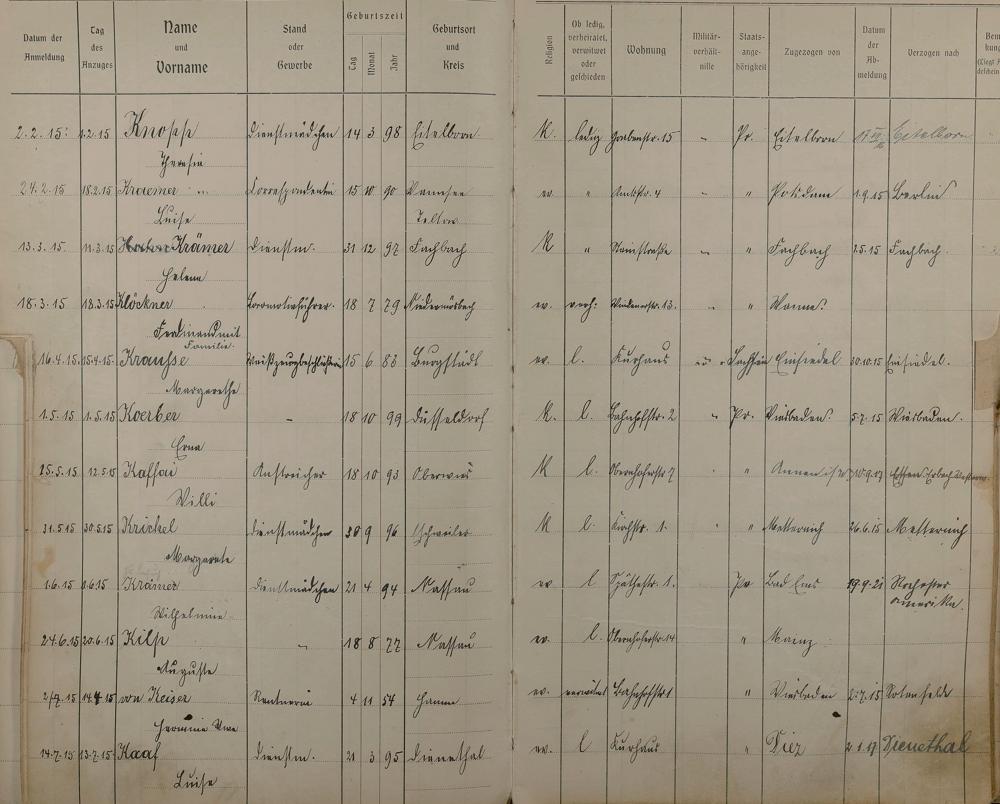 Datum der Anmeldung Tag des Anzuges Name und Vorname Stand oder Gewerbe Geburtszeit Tag Monat Jahr Geburtsort und Kreis Religion Ob ledig, verheiratet, verwitwet oder geschieden Wohnung Militär-verhält-nisse Staats-ange-hörigkeit Zugezogen von Datum der Ab-meldung Verzogen nach
2.2.15 1.2.15 Knopp Dienstmädchen 14 3 98 Eitelborn K. ledig Grabenstr. 15 " Pr. Eitelborn Eitelborn
Theresia
24.2.15 18.2.15 Kraemer Correspondentin 15 10 90 Wannsee ev. " Amtsstr. 4 " " Potsdam 1.9.15 Berlin
Luise Teltow
13.3.15 11.3.15 Krämer Dienstm. 31 12 97 Fachbach K " Steinstraße " " Fachbach 2.5.15 Fachbach
Helena
18.3.15 18.3.15 Klöckner Locomotivführer 18 7 79 ev. verh: 13. " "
Ferdinand mit
Familie
16.4.15 15.4.15 Krausse 15 6 83 Burgstädt ev. l. Kurhaus Sachsen Einsiedel 30.10.15 Einsiedel.
Margarethe
1.5.15 1.5.15 Koerber - 18 10 99 Düsseldorf K. l. Bahnhofstr. 2 " Pr. Wiesbaden 5.7.15 Wiesbaden.
Erna
25.5.15 12.5.15 Kassai Anstreicher 18 10 93 Oberwies K l. Obernhoferstr 7 " Annen i/W Essen
Willi
31.5.15 30.5.15 Krichel Dienstmädchen 30 9 96 Eschweiler K l. Kirchstr. 1. " Metternich 26.6.15 Metternich
Margarete
1.6.15 1.6.15 Krämer Dienstmädchen 21 4 94 Nassau ev l Späthestr. 1. Pr Bad Ems 19.9.21 Rochester
Wilhelmine Amerika
24.6.15 20.6.15 Kilp " 18 8 77 Nassau ev. l. Obernhoferstr 14 " Mainz
Auguste
2/7.15 14.4.15 von Keiser Rentnerin 4 11 54 Hamm ev. verwitwet Bahnhofstr 1 " Wiesbaden 2.7.15 Rotenfelde
Hermine Wwe
14.7.15 13.7.15 Kaaf Dienstm. 21 3 95 Dienethal ev. l Kurhaus " Diez 2.1.17 Dienethal
Luise